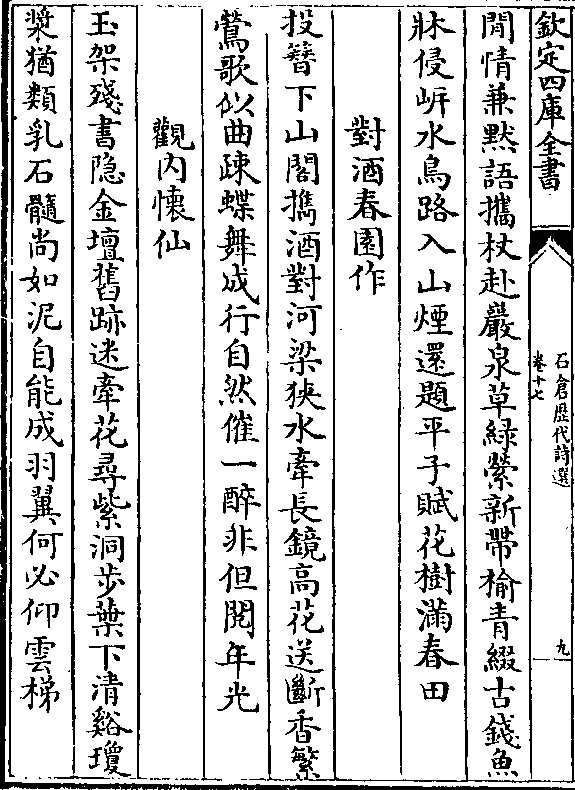 欽定四庫全書
石倉歴代詩選
卷十七
九
閒情兼黙語攜杖赴巖泉草緑縈新帶榆青綴古錢魚
牀侵岍水鳥路入山煙還題平子賦花樹滿春田
對酒春園作
投簪下山閣擕酒對河梁狹水牽長鏡高花送斷香繁
鶯歌似曲疎蝶舞成行自然催一醉非但閱年光
觀内懷仙
玉架殘書隐金壇舊跡迷牽花尋紫洞步葉下清谿瓊
漿猶類乳石髓尚如泥自能成羽翼何必仰雲梯